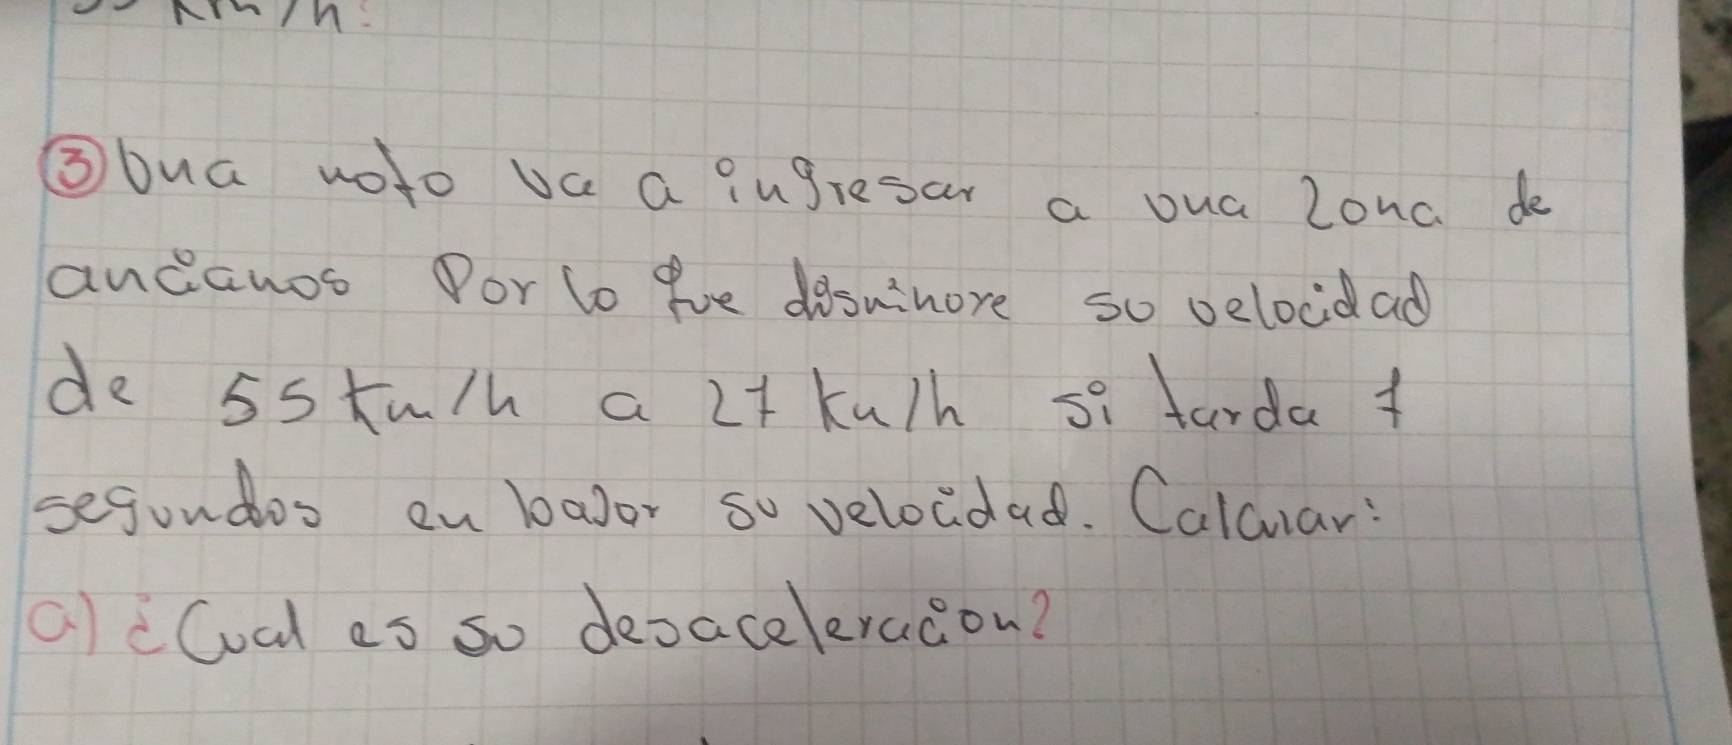 km/h.
③ Una moto va a ingresar a una zona de
ancianos Por lo que disminore su velocidad
de 55 km/h a 27 km/h si tarda 7
segundos en bajar su velocidad. Calcular:
a) ¿Cual es su desaceleración?